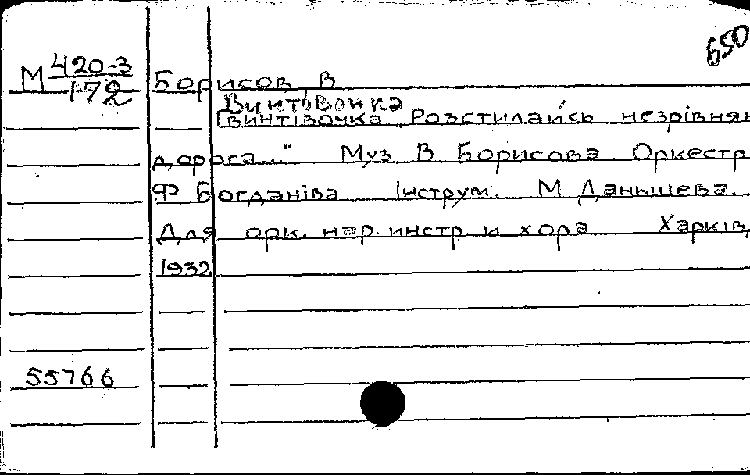 650
М 420-3
172
Борисов, В
Винтовочка
[Винтівочка Розстилайсь незрівнян
дорога..." Муз В Борисова Оркестр
Ф Богданіва Інструм. М Данышева.
Для орк. нар. инстр и хора Харків,
1932
55766